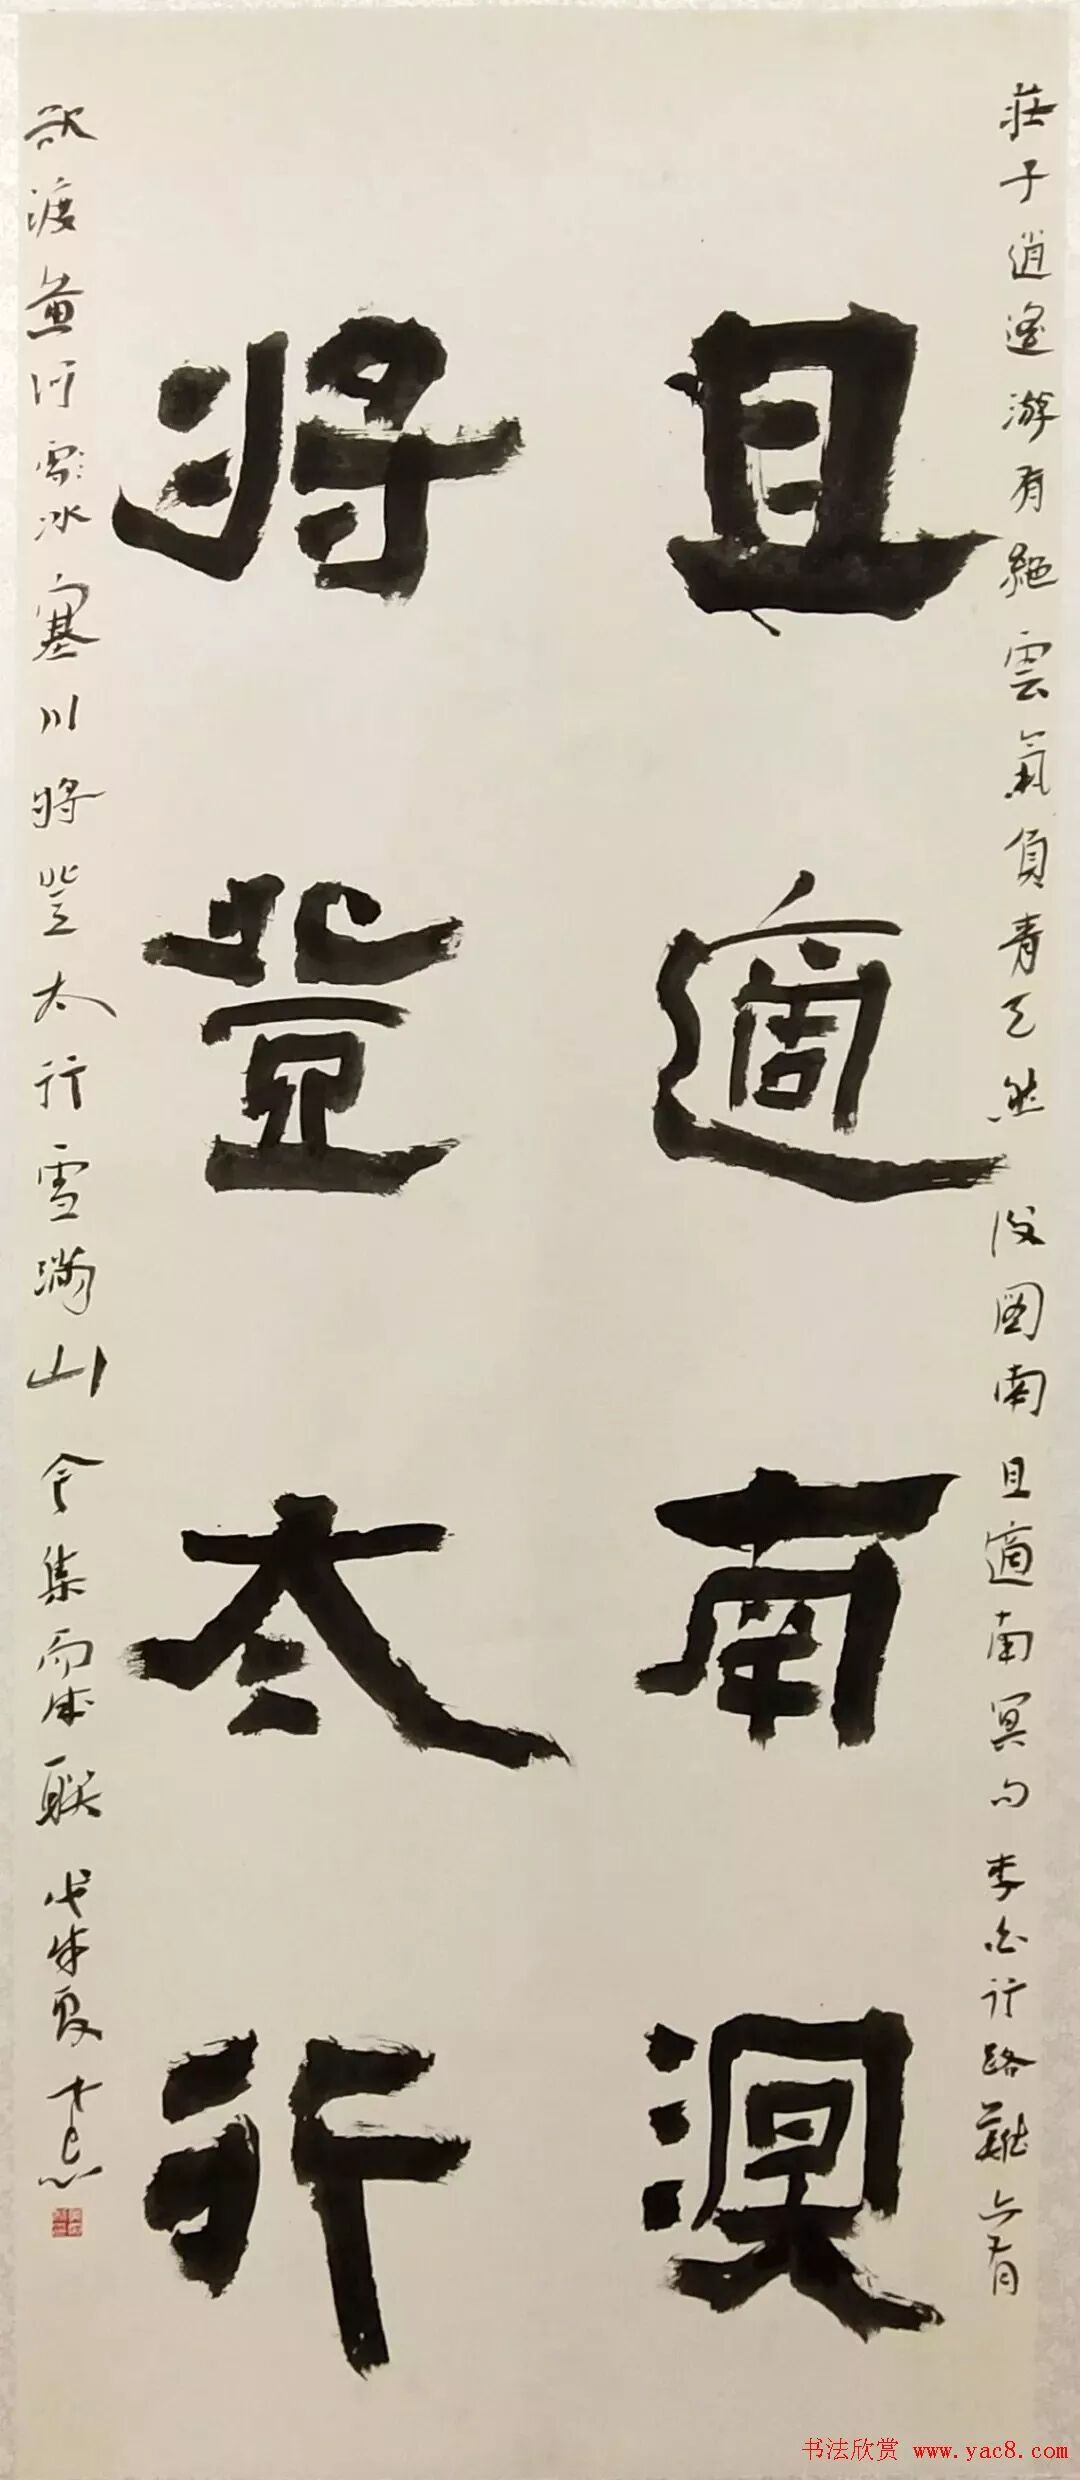 莊子逍遙游有絕雲氣負青天然後圖南且適南冥句李白行路難亦有
且適南溟
將登太行
欲渡黃河冰塞川將登太行雪滿山合集而成聯戊戌夏
书法欣赏 www.yac8.com